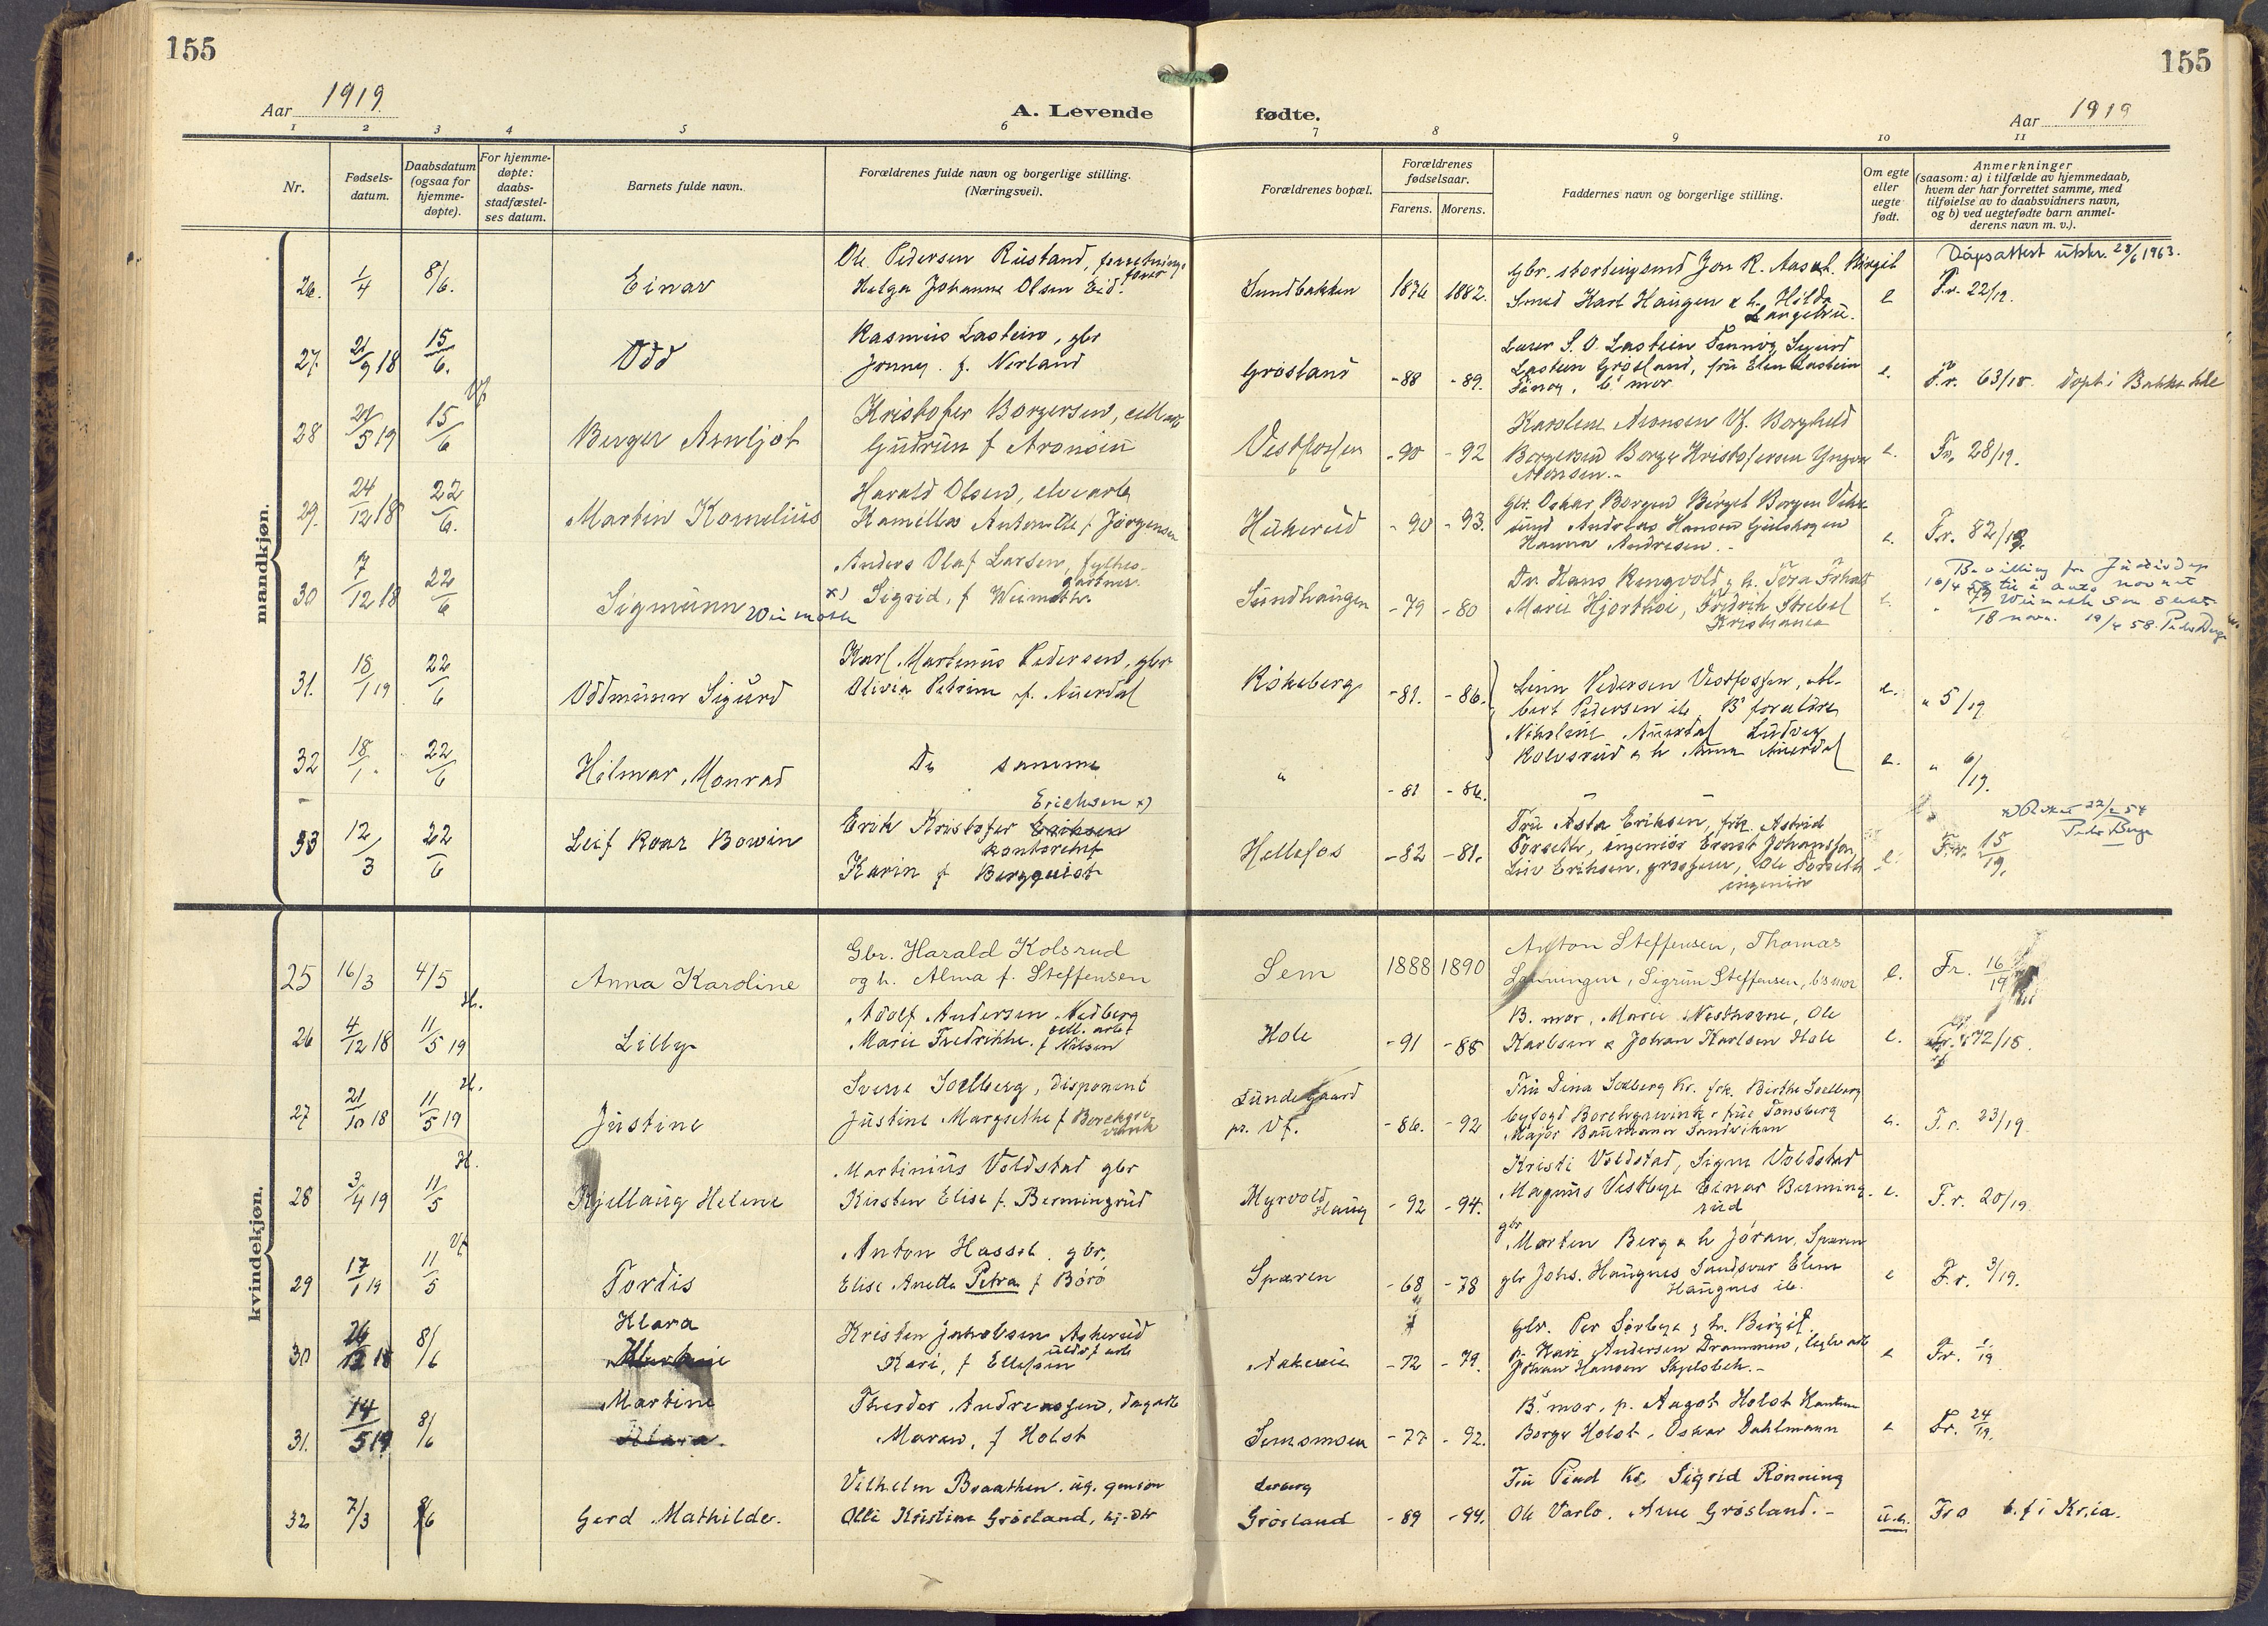 155
155
Aar 1919.
A. Levende fødte.
Aar 1919
1 2 3 4 5 6 7 8 9 10 11
Nr.
Fødsels-
datum.
Daabsdatum
(ogsaa for
hjemme-
døpte).
For hjemme-
døpte:
daabs-
stadfæstel-
ses datum.
Barnets fulde navn.
Forældrenes fulde navn og borgerlige stilling.
(Næringsvei).
Forældrenes bopæl.
Forældrenes
fødselsaar.
Farens. Morens.
Faddernes navn og borgerlige stilling.
Om egte
eller
uegte
født.
Anmerkninger
(saasom: a) i tilfælde av hjemmedaab,
hvem der har forrettet samme, med
tilføielse av to daabsvidners navn,
og b) ved uegtefødte barn anmel-
derens navn m. v.).
mandkjøn.
26. 1/4 8/6. Einar
Ole Pedersen Rustand, forretnings-
fører
Helga Johanne Olsen Eid.
Sundbakken 1876 1882.
Gbr. stortingsmd Jon R. Aas & h. Birgit
Smed Karl Haugen & h. Hilda
Langebru.
e
Dåpsattest utskr. 28/6 1963.
F.r. 22/19.
27. 21/9 18 15/6. Odd
Rasmus Lastein, gbr
Jenny f. Norland
Grøsland -88 -89.
Lærer S. O. Lastein Sigurd
Lastein Grøsland, fru Elen Lastein
B's mor
e.
F.r. 63/18. døpt i Bakke
28 21/5 19 15/6 Vf.
Berger Arnljot
Kristofer Borgersen, cell.arb
Gudrun f Aronsen
Vestfossen -90 -92
Karoline Aronsen Vf. Borghild
Borgersen Borge Kristofersen Yngvar
Aronsen.-
e.
F.r. 28/19.
29. 24/12 18 22/6.
Martin Kornelius
Harald Olsen, elvearb
Kamilla Antonette f Jørgensen
Hukerud -90 -93.
Gbr. Oskar Borgen Birgit Borgen
Andreas Hansen Gulskogen
Hanna Andresen.-
e.
F.r. 82/18
30 7/12 18 22/6
Sigmunn Weimoth
Anders Olaf Larsen, fylkes-
gartner.
x) Sigrid, f Weimoth.
Sundhaugen -79 -80
Dr. Hans Rengvold & h. Tora
Marie Hjorthøi, Fredrik Strebel
Kristiania
Bevilling fra Justisdep
16/4 58 til å anta navnet
Weimoth som
18 navn. 19/4 58. Peder Berge
31. 18/1 19 22/6
Oddmunn Sigurd
Karl Martenius Pedersen, gbr
Olivia Petrine f. Auerdal
Kokeberg -81. -86.
Linn Pedersen Vestfossen, Al-
bert Pedersen ib B's forældre
Nikoline Auerdal Ludvig
Kolvsrud & h Anna Auerdal
e.
" 5/19
32 18/1. 22/6
Hilmar Monrad
De samme
" -81 -86.
e.
" 6/19.
33 12/3 22/6
Leif Roar Bowin
Erichsen x)
Erik Kristofer Eriksen
kontorchef
Karin f Bergquist
Hellefos -82 -81.
Fru Asta Eriksen, frk. Astrid
Torseth, ingeniør Ernst Johansson,
Liv Eriksen, grosserer, Ole Torseth
ingeniør
e.
F.r. 15/19.
x) Rettet 22/2 54
Peder Berge
kvindekjøn.
25 16/3 4/5 Anna Karoline
Gbr. Harald Kolsrud
og h. Alma f. Steffensen
Sem 1888 1890
Anton Steffensen, Thomas
Sigrun Steffensen, b's mor
e.
Fr. 16/19
26 4/12 18 11/5 19 H.
Lilly
Adolf Andersen Nedberg
cell. arb
Marie Fredrikke f Nilsen
Hole -91 -88
B. mor, Marie Nesthorne, Ole
Karlsen & Johan Karlsen Hole
e.
F.r. 72/18.
27 21/10 18 11/5 19 H.
Justine
Sverre Solberg, disponent
Justine Margrethe f Borchgre-
vink
Lundegaard
pr. Vf. -86. -92
Fru Dina Solberg Kr. frk. Birthe Solberg
byfogd Borchgrevink & frue Tønsberg
Major Baumann Sandviken
e.
F.r. 23/19.
28 3/4 19 11/5 H.
Kjellaug Helene
Martinius Voldstad gbr
Kirsten Elise f. Bermingrud
Myrvold
Haug -92 -94.
Kristi Voldstad, Signe Voldstad
Magnus Vestbye Einar Berming-
rud
e.
F.r. 20/19.
29 17/1 19 11/5 Vf
Tordis
Anton Hassel. gbr.
Elise Anette Petra f Børø
Sparen -68 -78
gbr
Morten Berg & h Jøran, Sparen
gbr Johs. Haugnes Sandsvær Eline
Haugnes ib.
e
F.r. 3/19.
30 26/12 18 8/6
Klara
Kristen Jakobsen Aakerud
Kari, f Ellefsen
-72 -79.
Gbr. Per Sørbye & h. Birgit.
Andersen Drammen,
Johan Hansen
e
Fr. 1/19
31. 14/5 19 8/6
Martine
Klara.
Theodor Andreassen, dagarb
Maren, f Holst
Semsmoen -77 -92.
B's mor, p. Aagot Holst
Borge Holst, Oskar Dahlmann
e
Fr. 24/19.
32 7/3 8/6 Gerd Mathilde.
Vilhelm Braathen. ug.
Olli Kristine Grøsland, gj-dtr
Grøsland -89 -94.
Fru Kr. Sigrid Rønning
Ole Varlo. Arne Grøsland.-
u.e.
Fr o b. f i Kr.ia.